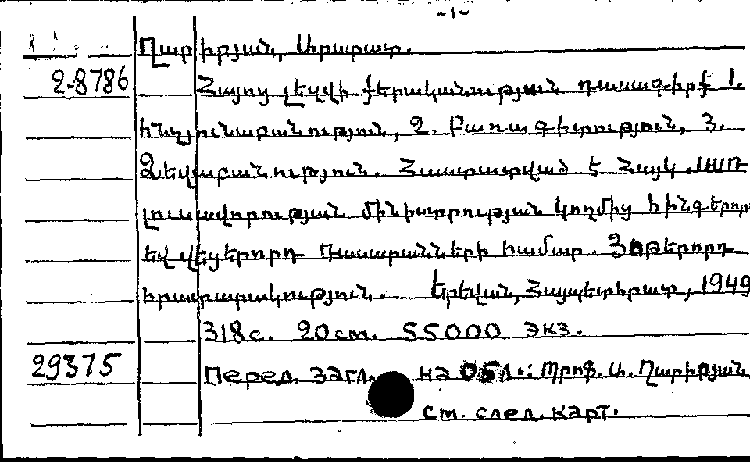 -1-
Ղարիբյան, Արարատ.
2-8786 Հայոց լեզվի քերականության դասագիրք 1.
հնչյունաբանություն, 2. Բառագիտություն, 3.
Ձևաբանություն. Հաստատված է Հայկ. ՍՍՌ
լուսավորության մինիստրության կողմից հինգերորդ
եվ վեցերորդ դասարանների համար. Յոթերորդ
հրատարակություն. Երեվան, Հայպետհրատ, 1949
318 с. 20 см. 55000 экз.
29375 Перед. загл. на обл.: Պրոֆ. Ա. Ղարիբյան
см. след. карт.